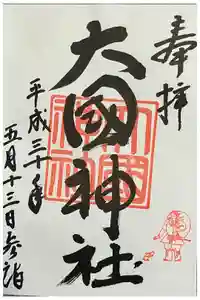 奉拝
大國神社
平成三十年
五月十三日参詣